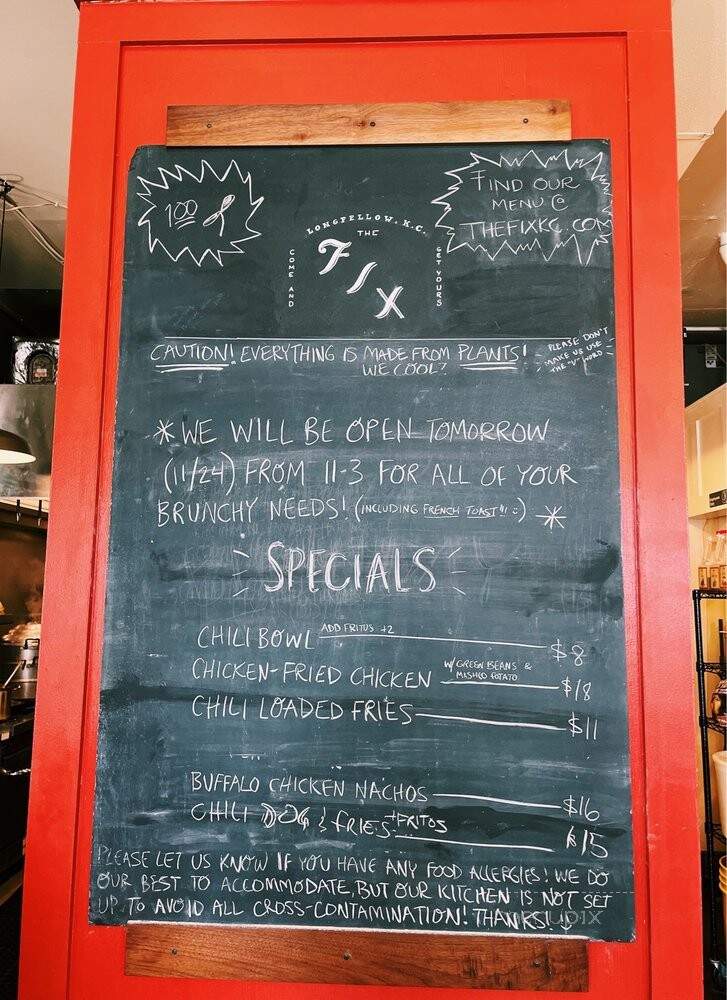 100
FIND OUR
MENU @
THEFIXKC.COM
LONGFELLOW, K.C.
THE
COME AND
FIX
GET YOURS
CAUTION! EVERYTHING IS MADE FROM PLANTS!
WE COOL?
PLEASE DON'T
MAKE US USE
THE "V" WORD
*WE WILL BE OPEN TOMORROW
(11/24) FROM 11-3 FOR ALL OF YOUR
BRUNCHY NEEDS! (INCLUDING FRENCH TOAST!! :) *
SPECIALS
CHILI BOWL ADD FRITOS +2 $8
CHICKEN-FRIED CHICKEN W/ GREEN BEANS &
MASHED POTATO $18
CHILI LOADED FRIES $11
BUFFALO CHICKEN NACHOS $16
CHILI DOG & FRIES +FRITOS $15
PLEASE LET US KNOW IF YOU HAVE ANY FOOD ALLERGIES! WE DO
OUR BEST TO ACCOMMODATE, BUT OUR KITCHEN IS NOT SET
UP TO AVOID ALL CROSS-CONTAMINATION! THANKS!